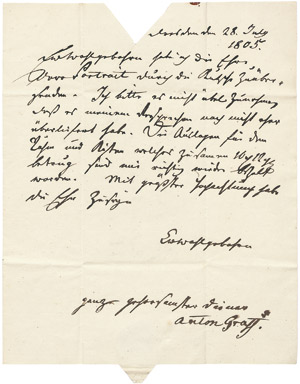 Dresden den 28. July
1805.
Ewwohlgebohren habe ich die Ehre
Dero Portrait durch die Kutsche zu über-
senden. Ich bitte es nicht übel zu nehmen
daß es meinem Versprechen nach nicht eher
überliefert habe. Die Auslagen für den
Rahm und Kisten welches zusammen
betrug sind mir richtig wieder
worden. Mit größter Hochachtung habe
die Ehr zu seyn
Ewwohlgebohren
ganz gehorsamster Diener
Anton Graff.